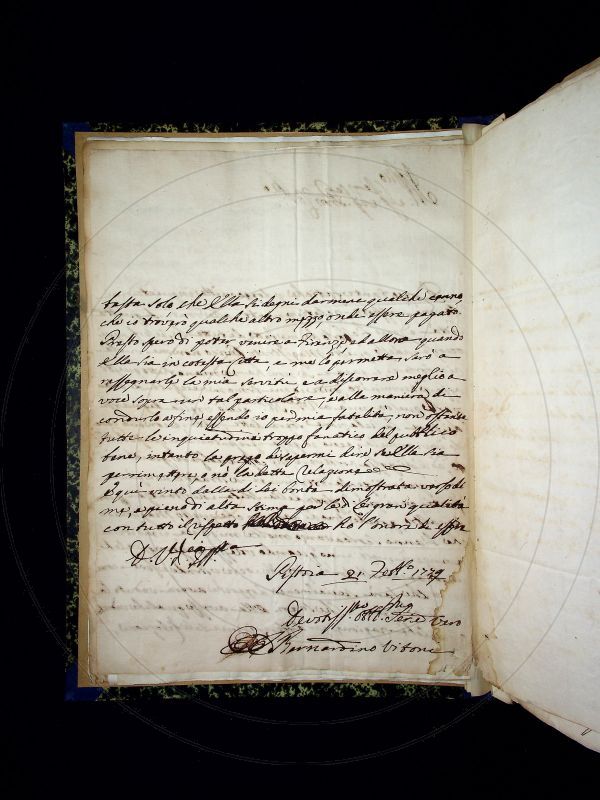 basta solo che Ella si degni darmene qualche cenno,
che io troverò qualche altro mezzo onde essere pagato.
Presto spero di poter venire a Firenze ed allora quando
Ella sia in cotesta Città, e me lo permetta, sarò a
rassegnarle la mia servitù, e a discorrere meglio a
voce sopra un tal particolare, e alla maniera di
condurlo a fine essendo io per mia fatalità, non ostante
tutte le inquietudini troppo fanatico del pubblico
bene, intanto la prego di sapermi dire se Ella sia
per rimettere, o nò la detta Relazione
E qui vinto dalla di lei bontà dimostrata verso di
me, e pieno di alta stima per le di lei gran qualità
con tutto il rispetto ho l'onore di essere
D. V.
Pistoia 21 1779
Devotiss.mo Obb. Serv. Vero
Bernardino Vitoni